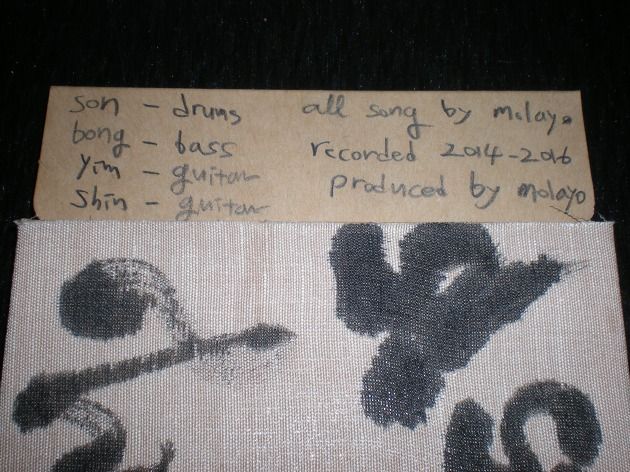 son - drums
bong - bass
yim - guitar
shin - guitar
all song by molayo
recorded 2014-2016
produced by molayo